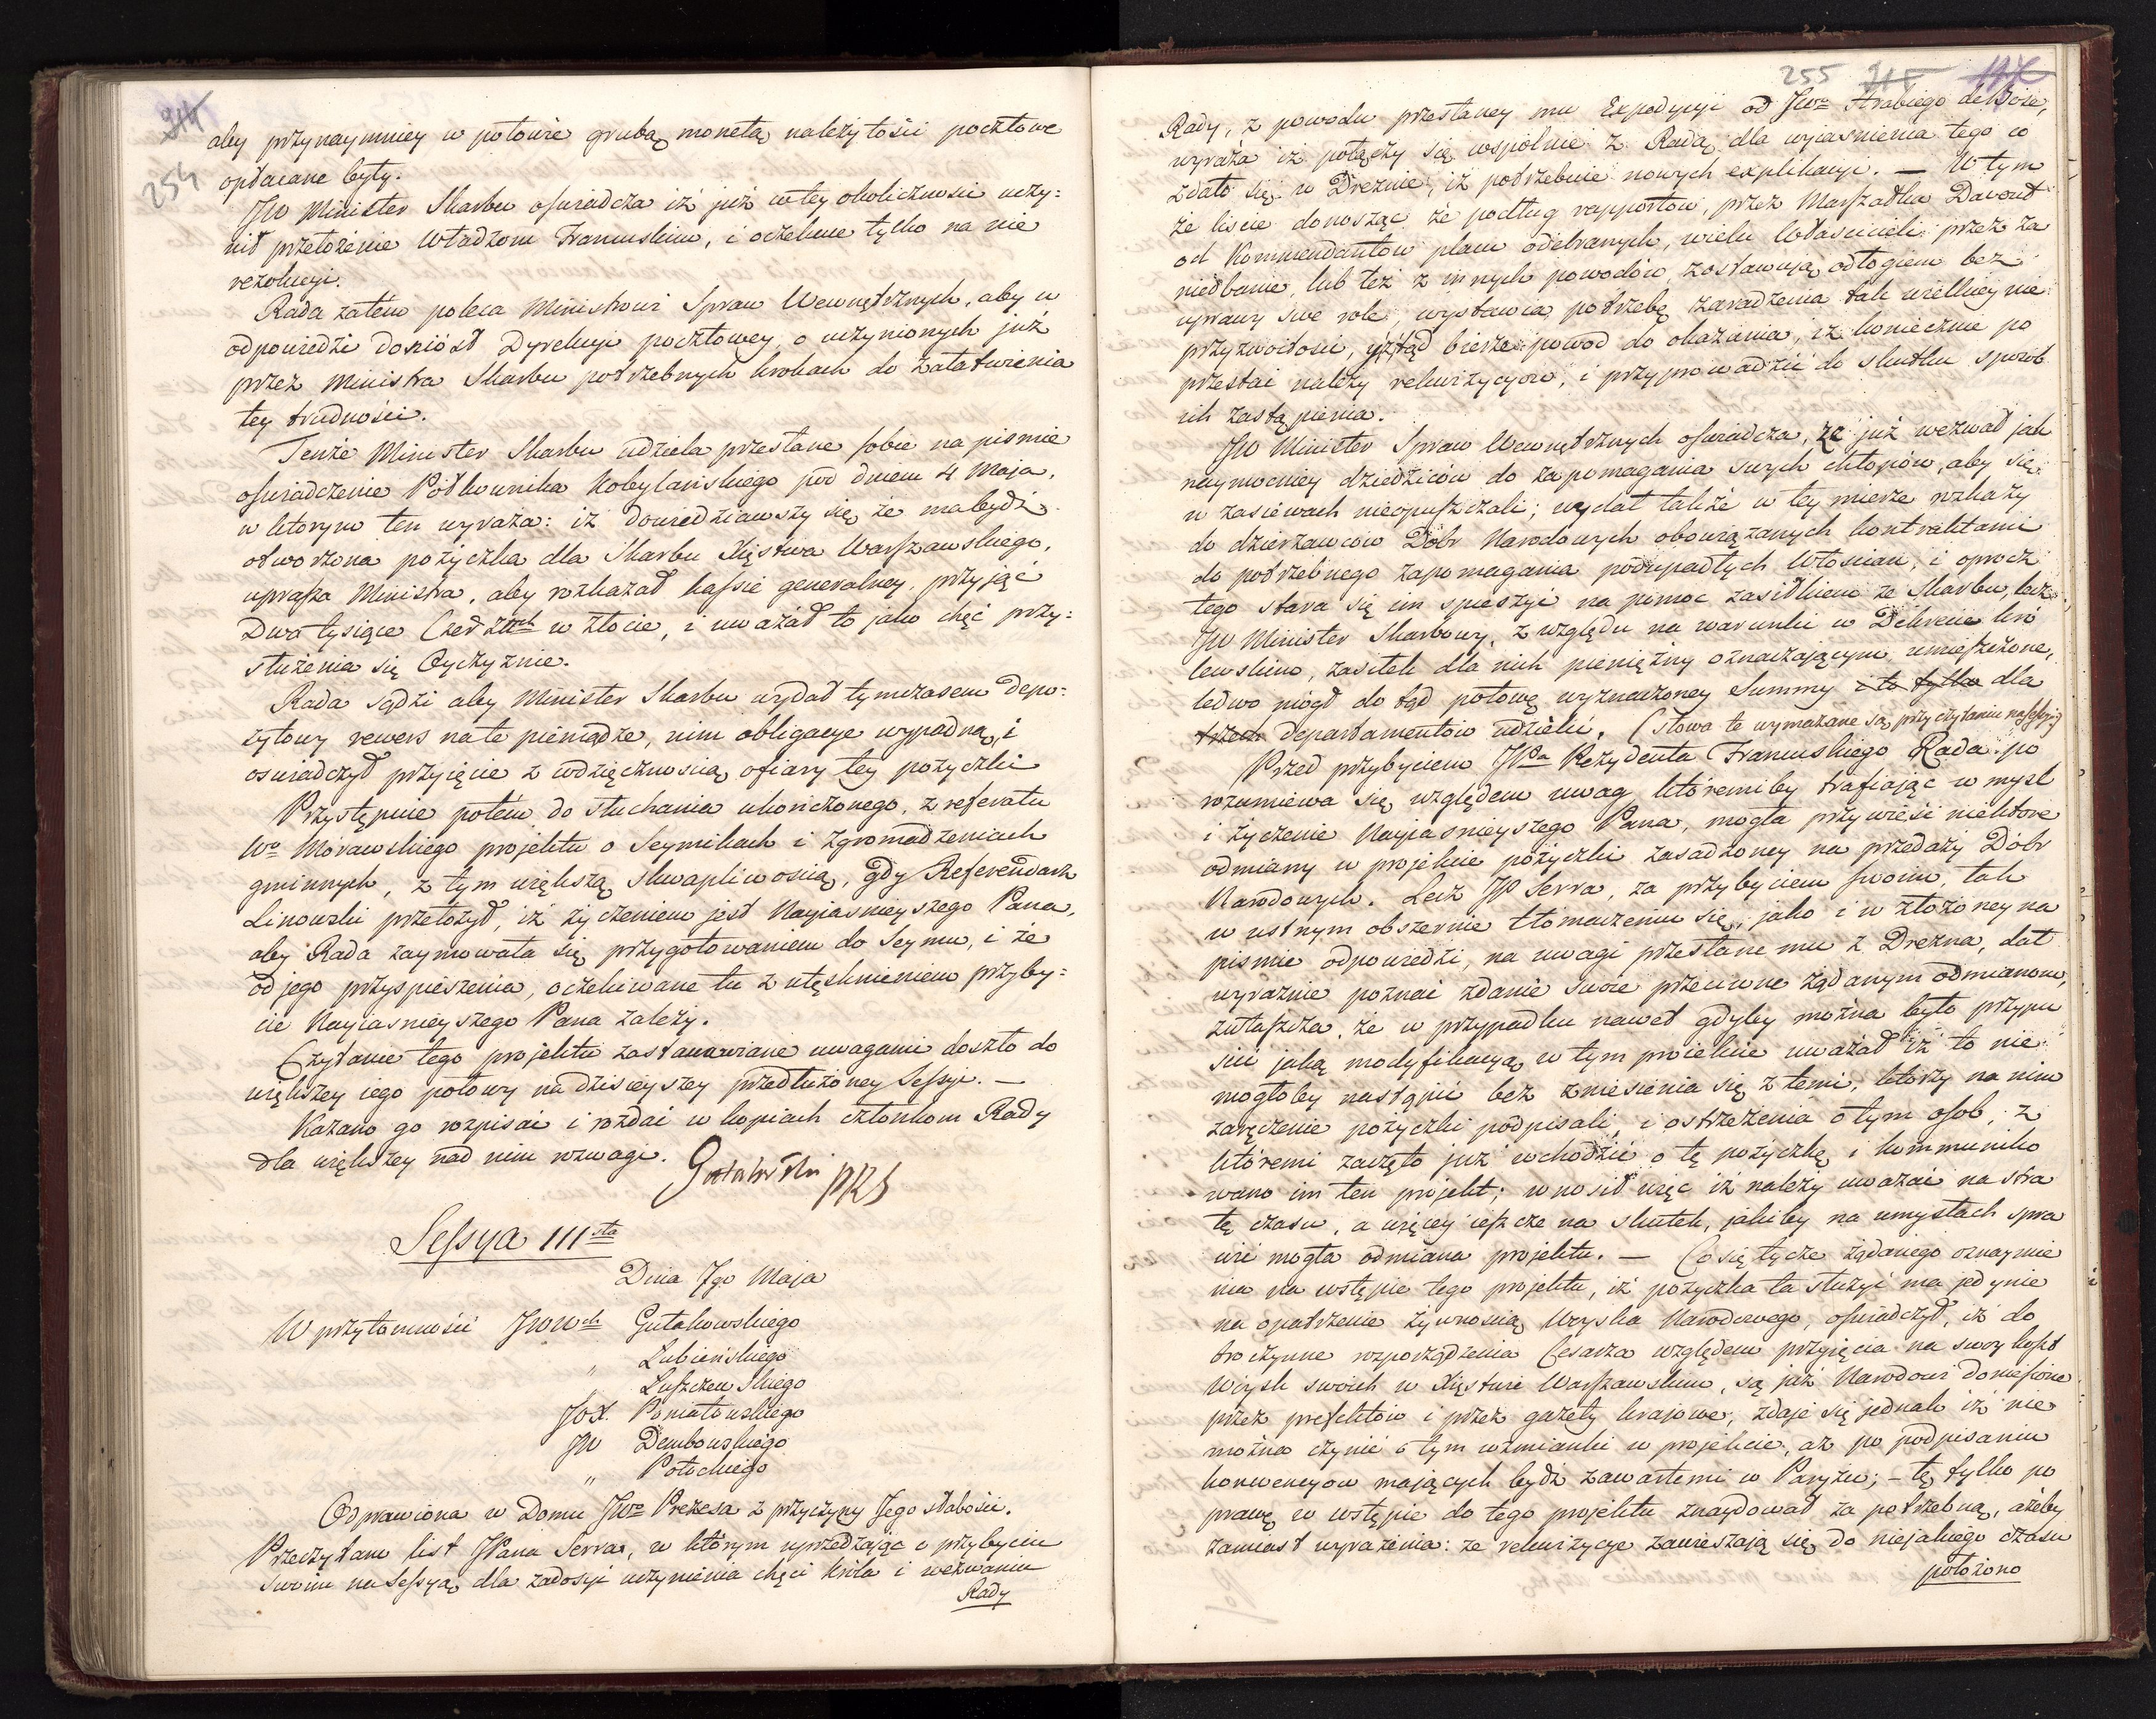 254
aby przynaymniey w połowie grubą monetą należytości pocztowe
opłacane były.
JW Minister Skarbu oswiadcza iż już w tey okoliczności uczy:
nił przełożenie Władzom Francuskim, i oczekuie tylko na nie
rezolucyi.
Rada zatem poleca Ministrowi Spraw Wewnętrznych, aby w
odpowiedzi doniósł Dyrekcyi pocztowey, o uczynionych już
przez Ministra Skarbu potrzebnych krokach do załatwienia
tey trudności.
Tenże Minister Skarbu udziela przesłane sobie na pismie
oswiadczenie Półkownika Kobylańskiego pod dniem 4 Maja,
w ktorym ten wyraża: iż dowiedziawszy się że ma bydź
otworzona pożyczka dla Skarbu Xięstwa Warszawskiego,
uprasza Ministra, aby rozkazał kassie generalney przyjąć
Dwa tysiące Czer Złtch w złocie, i uważał to jako chęć przy:
służenia się Oyczyznie.
Rada sądzi aby Minister Skarbu wydał tymczasem depo:
zytowy rewers na te pieniądze, nim obligacye wypadną, i
oswiadczył przyięcie z wdzięcznością ofiary tey pożyczki
Przystępuie potém do słuchania ukończonego, z referatu
Wo Morawskiego projektu o Seymikach i Zgromadzeniach
gminnych, z tym większą skwapliwością, gdy Referendarz
Linowski przełożył, iż życzeniem jest Nayiasnieyszego Pana,
aby Rada zaymowała się przygotowaniem do Seymu, i że
od jego przyspieszenia, oczekiwane tu z utęsknieniem przyby:
cie Nayiasnieyszego Pana zależy.
Czytanie tego projektu zastanawiane uwagami doszło do
większey iego połowy na dzisieyszey przedłużoney Sessyi. —
Kazano go rozpisać i rozdać w kopiach członkom Rady
dla większey nad nim rozwagi. Gutakowski PRS
Sessya 111sta
Dnia 7go Maja
W przytomności JWWch Gutakowskiego
" Łubieńskiego
Łuszczewskiego
JOX. Poniatowskiego
JW Dembowskiego
" Potockiego
Odprawiona w Domu JWo Prezesa z przyczyny Jego słabości.
Przeczytano list JPana Serra, w którym uprzedzając o przybyciu
swoim na Sessyą, dla zadosyć uczynienia chęci Króla i wezwaniu
Rady
255
Rady, z powodu przesłaney mu Expedycyi od JWo Hrabiego de Bose,
wyraża iż połączy się wspólnie z Radą dla wyiasnienia tego co
zdało się w Dreznie, iż potrzebuie nowych explikacyi. — W tym
że liscie donosząc że podług rapportow, przez Marszałka Davout
od Kommendantow placu odebranych, wielu Właścicieli przez za
niedbanie, lub też z innych powodów, zostawują odłogiem bez
uprawy swe role, wystawia potrzebę zaradzenia tak wielkiey nie
przyzwoitości, ztąd bierze powod do okazania, iż koniecznie po
przestać należy rekwizycyow, i przyprowadzić do skutku sposob
ich zastąpienia.
JW Minister Spraw Wewnętrznych oswiadcza, że już wezwał jak
naymocniey dziedziców do zapomagania swych chłopów, aby się
w zasiewach nieopuszczali; wydał także w tey mierze rozkazy
do dzierżawcow Dóbr Narodowych obowiązanych kontraktami
do potrzebnego zapomagania podupadłych Włościan, i oprocz
tego stara się im spieszyć na pomoc zasiłkiem ze Skarbu, lecz
JW Minister Skarbowy, z względu na warunki w Dekrecie kró
lewskim, zasiłek dla nich pieniężny oznaczającym umieszczone,
ledwo mógł do tąd połowę wyznaczoney Summy i to tylko dla
trzech departamentów udzielić. (Słowa te wymazane są przy czytaniu na Sessyi)
Przed przybyciem JPa Rezydenta Francuskiego Rada po
rozumiewa się względem uwag któremiby trafiając w mysl
i życzenie Nayiasnieyszego Pana, mogła przywieść niektóre
odmiany w projekcie pożyczki zasadzoney na przedaży Dóbr
Narodowych. Lecz JP Serra, za przybyciem swoim, tak
w ustnym obszernie tłomaczeniu się, jako i w złożoney na
pismie odpowiedzi, na uwagi przesłane mu z Drezna, dał
wyraźnie poznać zdanie swoie przeciwne żądanym odmianom,
zwłaszcza, że w przypadku nawet gdyby można było przypu
ścić jaką modyfikacyą w tym projekcie uważał iż to nie
mogłoby nastąpić bez zniesienia się z temi, którzy na nim
zaręczenie pożyczki podpisali, i ostrzeżenia o tym osob, z
któremi zaczęto już wchodzić o tę pożyczkę i kommuniko
wano im ten projekt; wnosił więc iż należy uważać na stra
tę czasu, a więcey ieszcze na skutek, jakiby na umysłach spra
wić mogła odmiana projektu. — Co się tycze żądanego oznaymie
nia na wstępie tego projektu, iż pożyczka ta służyć ma jedynie
na opatrzenie żywnością Woyska Narodowego, oswiadczył, iż do
broczynne rozporządzenia Cesarza względem przyjęcia na swoy koszt
Woysk swoich w Xięstwie Warszawskim, są już Narodowi doniesione
przez prefektów i przez gazety krajowe, zdaje się jednak iż nie
można czynić o tym wzmianki w projekcie, aż po podpisaniu
konwencyow mających bydź zawartemi w Paryżu; – tę tylko po
prawę w wstępie do tego projektu znaydował za potrzebną, ażeby
zamiast wyrażenia: że rekwizycye zawieszają się do niejakiego czasu
położono